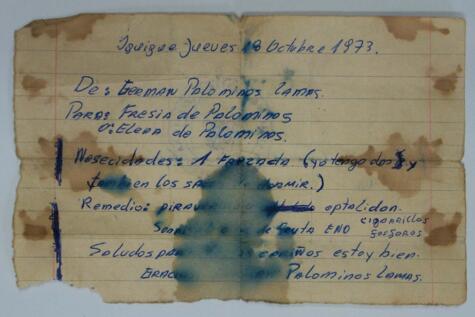 Iquique Jueves 18 Octubre 1973.
De: German Palominos Lamas.
Para: Fresia de Palominos
o: Elena de Palominos.
Nesecidades: 1 Frazada (yo tengo dos y
tambien los sa de dormir.)
Remedio: optalidon.
cigarrillos
de Fruta ENO fosforos
Saludos para cariños estoy bien.
Palominos Lamas.